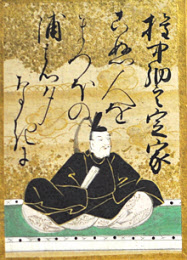 権中納言定家
こぬ人を
まつほの
浦の夕
なきに